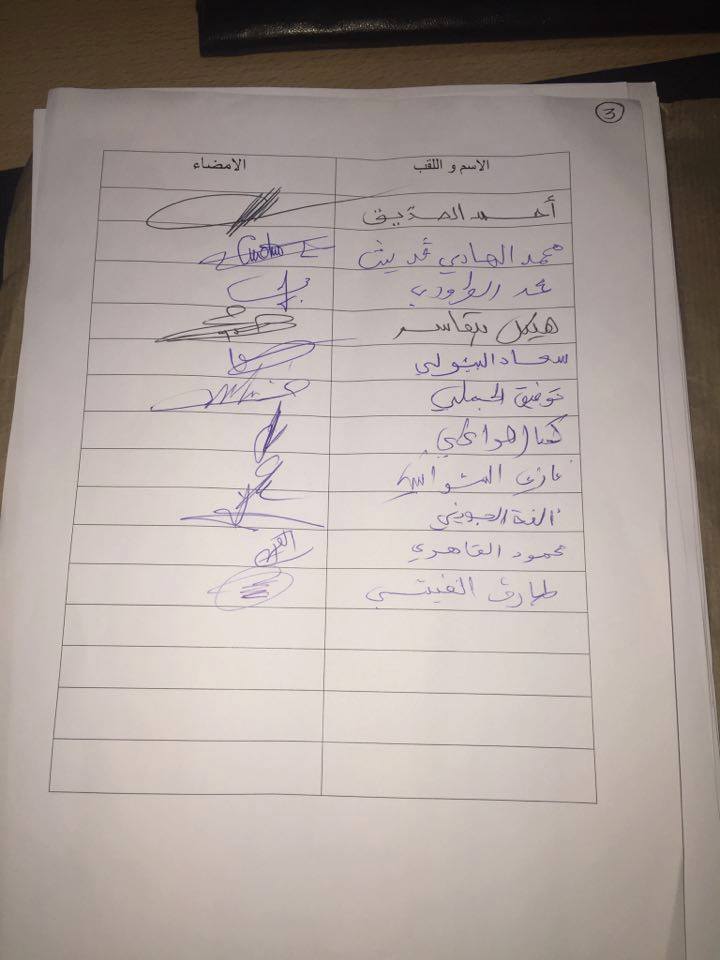 3
الاسم و اللقب الامضاء
أحمد الصديق
محمد الهادي قديش
محمد الراودي
هيكل بلقاسم
سعاد البيولي
توفيق الجملي
كمال هوا
غازي الشواشي
الفة الجويني
محمود القاهري
طارق الفتيتي